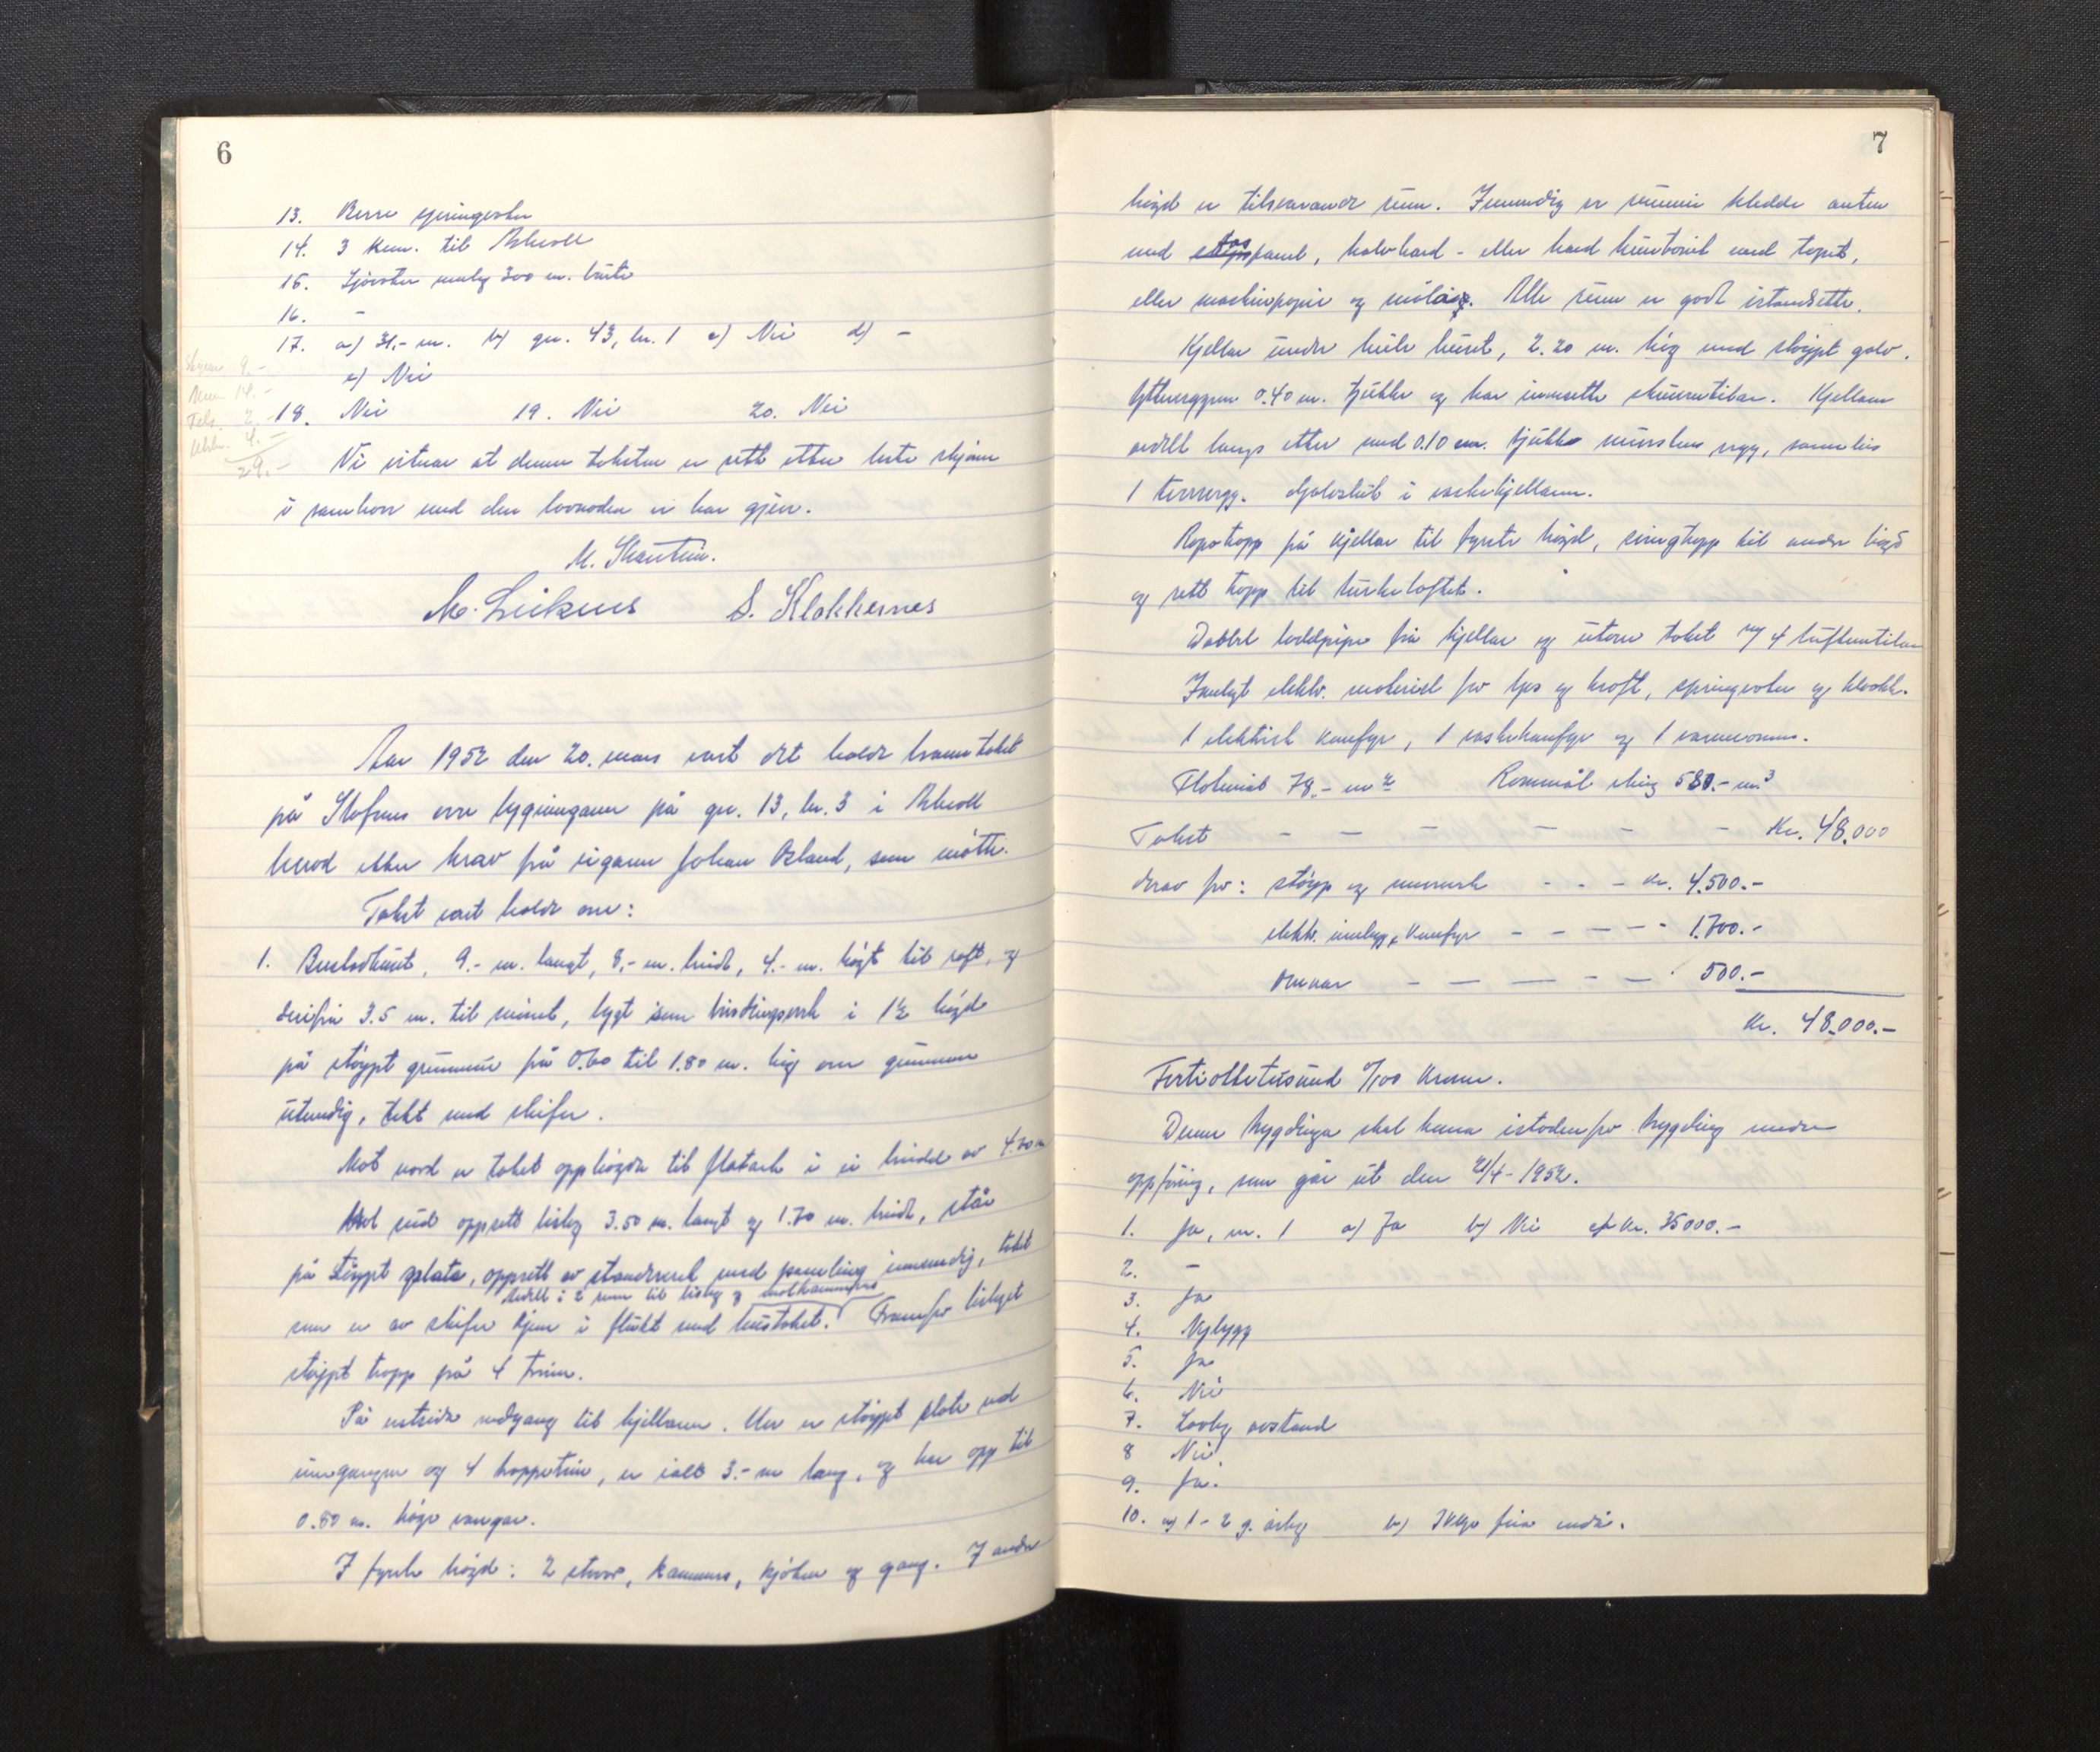 6
13. Berre springvatn
14. 3 km. til Askvoll
15. Sjøvatn umlag 300 m. borte
16. -
17. a) 31,- m. b) gn. 43, bn. 1 c) Nei d) -
e) Nei
18. Nei 19. Nei 20. Nei
Skyss 9.-
14.-
Tels. 2.-
4.-
29.-
Vi vitnar at denne taksten er sett etter beste skjøn
i samhøve med den lovnaden vi har gjeve.
M. Leiknes S. Klakkernes
Aar 1952 den 20. mars vart det halde branntakst
på Stafnes over bygningane på gn. 13, bn. 3 i Askvoll
herad etter krav frå eigaren Johan Osland, som møtte.
Takst vart halde over:
1. Bustadhuset, 9.- m. langt, 8,- m. breidt, 4.- m. høgt til raft, og
derifrå 3.5 m. til mønet, bygt som bindingsverk i 1½ høgd
på støypt grunnmur på 0.60 til 1.80 m. høg over grunnen
utvendig, tekt med skifer.
Mot nord er taket opphøgda til flatark i ei breidd av 4.20 m
Mot sud oppsett bislag 3.50 m. langt og 1.70 m. breidt, står
på støypt plate, oppsett av standverk med paneling innvendig, taket
delt i 2 rum til bislag og matkammers
som er av skifer kjem i flukt med hustaket. Framfor bislaget
støypt trapp på 4 trinn.
På vestsida nedgang til kjellaren. Her er støypt plate ved
inngangen og 4 trappetrinn, er ialt 3.- m lang, og har opp til
0.80 m. høge vangar.
I fyrste høgd: 2 stover, kammers, kjøken og gang. I andre
7
høgd er tilsvarande rum. Innvendig er rummi kledde anten
med staffpanel, halvhard - eller hard huntonit med tapet,
eller maskinpapir og målar. Alle rum er godt istandsette.
Kjellar under heile huset, 2.20 m. høg med støypt golv.
Ytterveggene 0.40 m. tjukke og har innsette skuventilar. Kjellaren
avdelt langs etter med 0.10 cm. tjukk murstens vegg, sameleis
1 tverrvegg. Golvsluk i vaskekjellaren.
Rapotrapp på kjellar til fyrste høgd, svingtrapp til andre høgd
og rett trapp til turkeloftet.
Dobbel teglpipe frå kjellar og utover taket og 4 luftventilar
Innlagt elektr. materiel for lys og kraft, springvatn og kloakk.
1 elektrisk komfyr, 1 vaskekomfyr og 1 varmeomn.
Flatemål 78.- m² Rommål ikring 580.- m³
Takst - - - - - - Kr. 48.000
derav for: støyp og murverk - - - kr. 4.500.-
elektr. innlegg, komfyr - - - - - 1.700.-
omnar - - - - - - 500.-
Kr. 48.000.-
Førtiåttetusund 0/100 kroner.
Denne bygdinga skal koma istadenfor bygding under
oppføring, som går ut den 21/4-1952.
1. Ja, nr. 1 a) Ja b) Nei c) Kr. 35000.-
2. -
3. Ja
4. Nybygg
5. Ja
6. Nei
7. Lovleg avstand
8 Nei
9. Ja.
10. a) 1 - 2 g. årleg b) Ikkje feia endå.